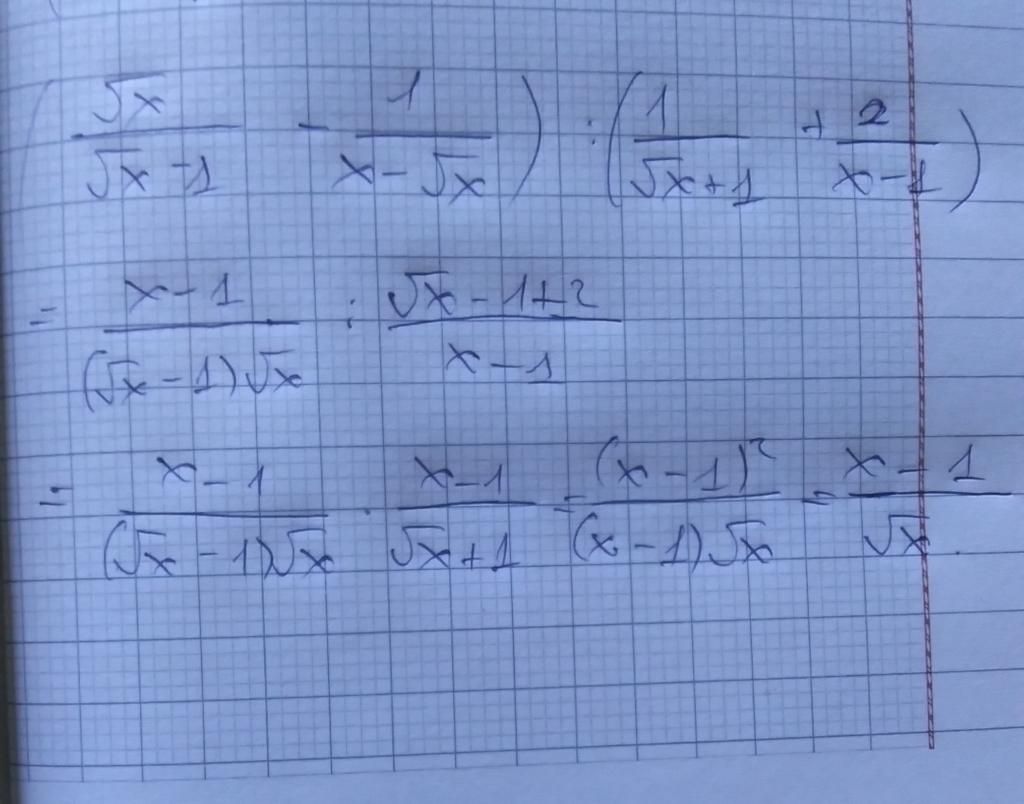 (√x/(√x-1) - 1/(x-√x)) : (1/(√x+1) + 2/(x-1))
= (x-1)/((√x-1)√x) : (√x-1+2)/(x-1)
= (x-1)/((√x-1)√x) · (x-1)/(√x+1) = (x-1)²/((x-1)√x) = (x-1)/√x.